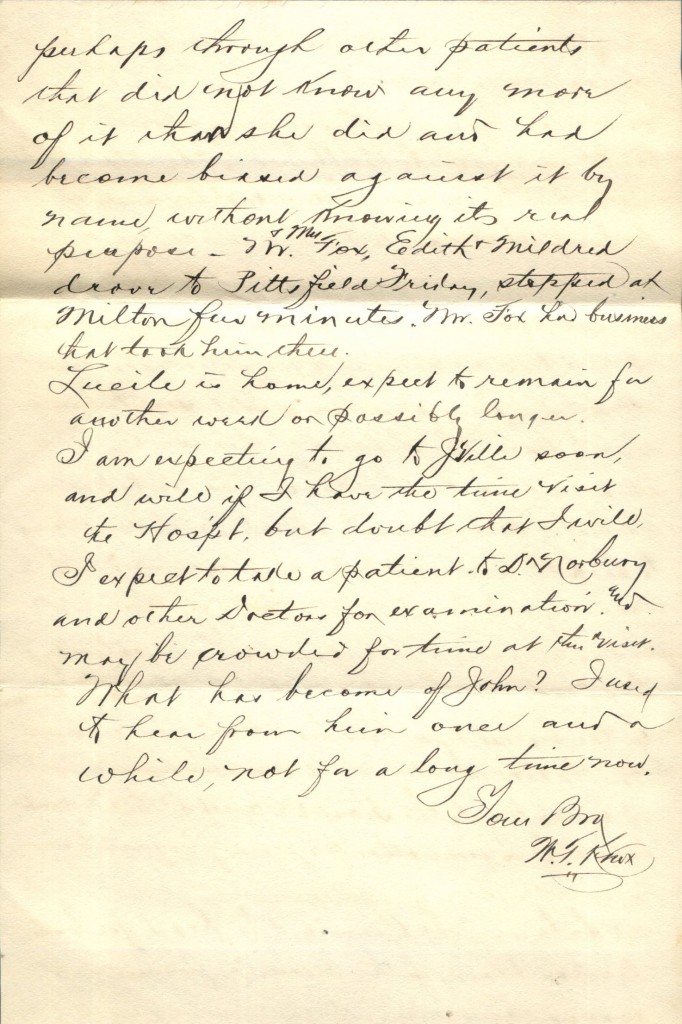 perhaps through other patients
that did not know any more
of it than she did and had
become biased against it by
name, without knowing its real
purpose - Mr. & Mrs Fox, Edith & Mildred
drove to Pittsfield Friday, stopped at
Milton few minutes. Mr. Fox had business
that took him there.
Lucile is home, expect to remain for
another week or possibly longer.
I am expecting to go to J'Ville soon,
and will if I have the time visit
the Hospt, but doubt that I will,
I expect to take a patient to Dr Norbury
and other Doctors for examination. and
may be crowded for time at this visit.
What has become of John? I used
to hear from him once and a
while, not for a long time now.
Your Bro
W. T. Knox